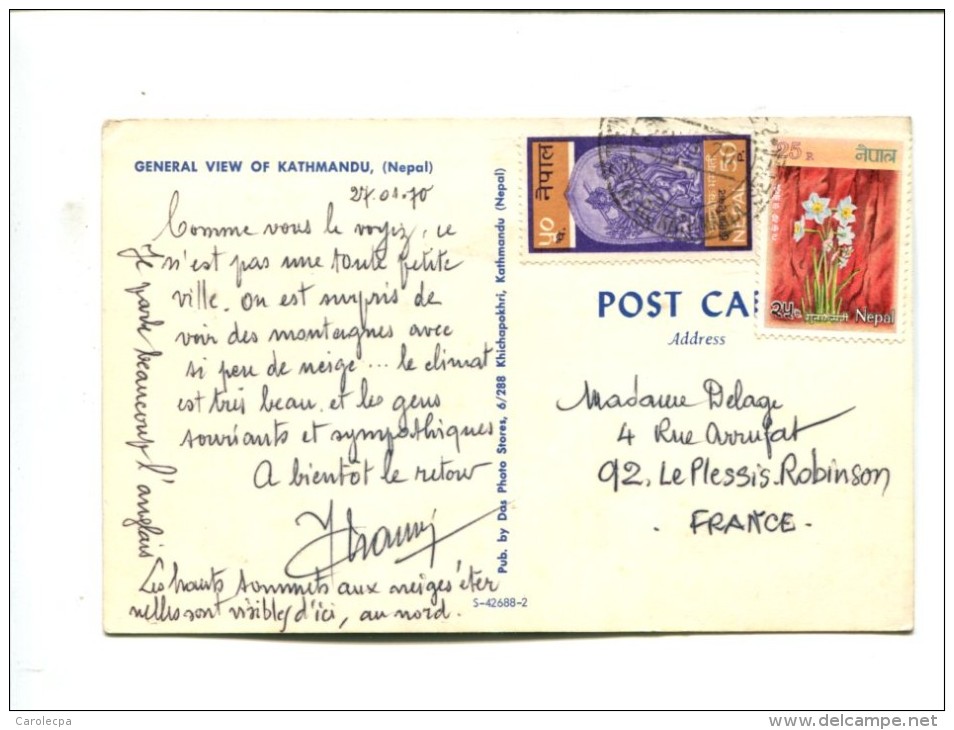 GENERAL VIEW OF KATHMANDU, (Nepal)
27.01.70
Comme vous le voyiz, ce
n'est pas une toute petite
ville. On est surpris de
voir des montagnes avec
si peu de neige... le climat
est très beau et les gens
souriants et sympathiques
A bientôt le retour
Je parle beaucoup l'anglais
Les hauts sommets aux neiges éter
nelles sont visibles d'ici, au nord.
S-42688-2
Pub. by Das Photo Stores, 6/288 Khichapokhri, Kathmandu (Nepal)
नेपाल
५० P.
NEPAL 50 P.
25 R
नेपाल
२५
Nepal
POST CA
Address
Madame Delage
4 Rue Arrufat
92. Le Plessis-Robinson
- FRANCE -
Carolecpa
www.delcampe.net